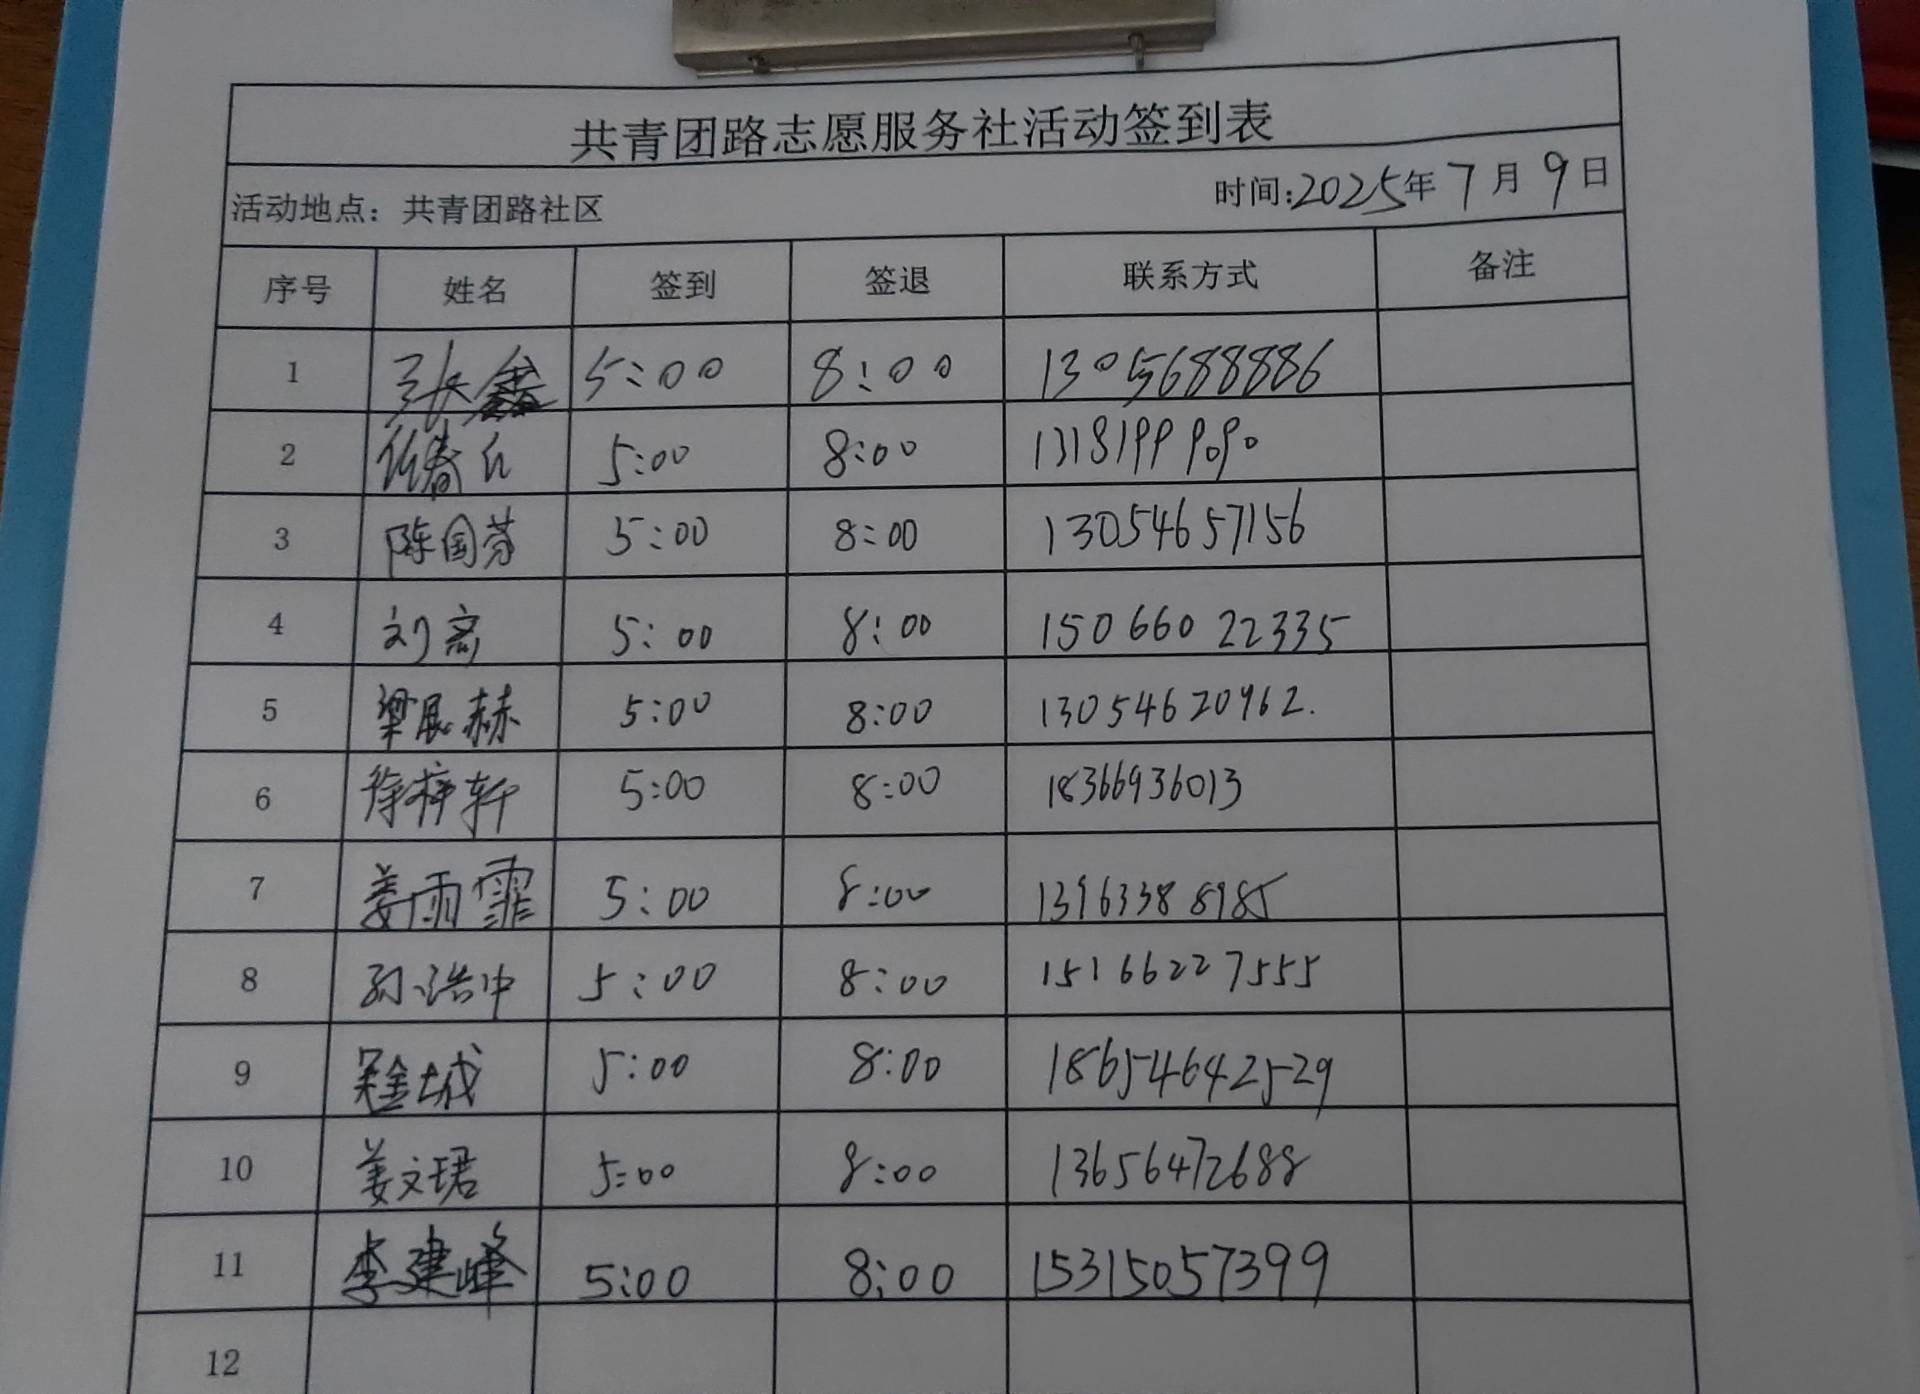 共青团路志愿服务社活动签到表
活动地点：共青团路社区 时间:2025年7月9日
序号 姓名 签到 签退 联系方式 备注
1 张鑫 5:00 8:00 13056888886
2 任春丘 5:00 8:00 13181999090
3 陈国芬 5:00 8:00 13054657156
4 刘离 5:00 8:00 15066022335
5 梁展赫 5:00 8:00 13054620962.
6 徐梓轩 5:00 8:00 18366936013
7 姜雨霏 5:00 8:00 13963388985
8 孙浩中 5:00 8:00 15166227555
9 金城 5:00 8:00 18654642529
10 姜文珺 5:00 8:00 13656472688
11 李建峰 5:00 8:00 15315057399
12